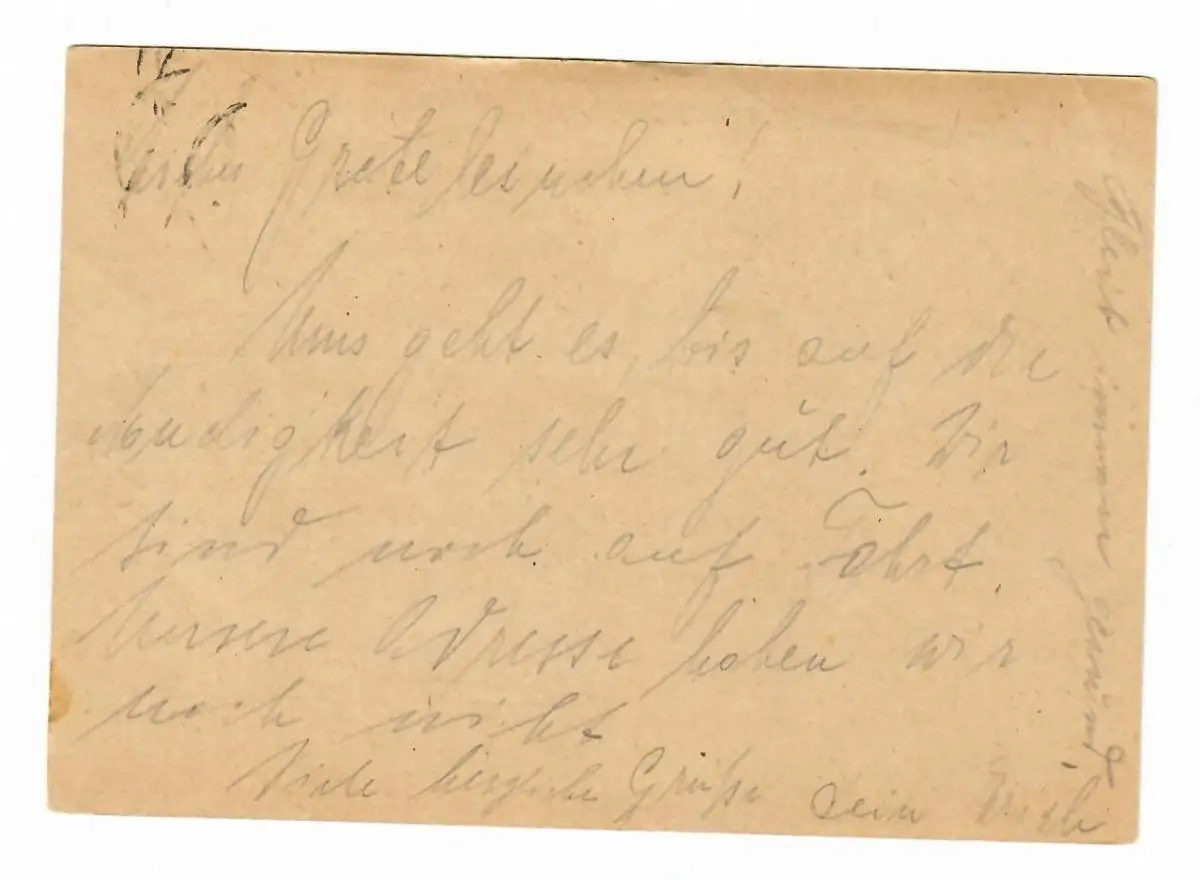 Liebes Greteleinchen!
Uns geht es, bis auf die
Müdigkeit sehr gut. Wir
sind noch auf Fahrt.
Unsere Adresse haben wir
noch nicht
Viele herzliche Grüße Dein Erich
Bleib immer gesund,